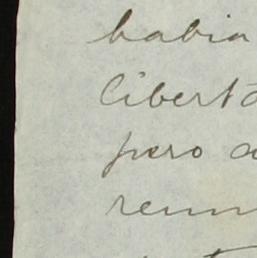 habia
libert
pero a
reun